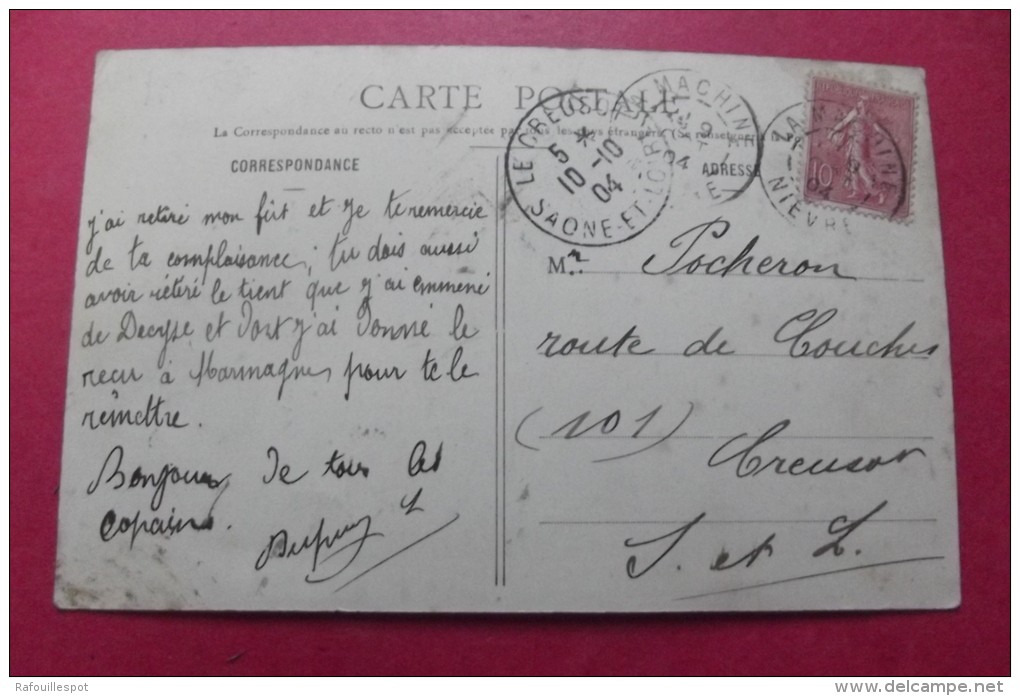 CARTE POSTALE
La Correspondance au recto n'est pas acceptée par tous les pays étrangers (Se renseigner
CORRESPONDANCE
ADRESSE
LE CREUSOT
5 *
10 -10
04
SAONE-ET-LOIRE
LA MACHINE
LA MACHINE
04
NIEVRE
10
j'ai retiré mon fût et je te remercie
de ta complaisance, tu dois aussi
avoir rétiré le tient que j'ai emmené
de Decyse et dont j'ai donné le
reçu à Marmagnes pour te le
remettre.
Bonjour de tous les
copains.
Dupuy L
M.r Pocheron
route de Couches
(101)
Creusot
S. et L.
Rafouillespot
www.delcampe.net